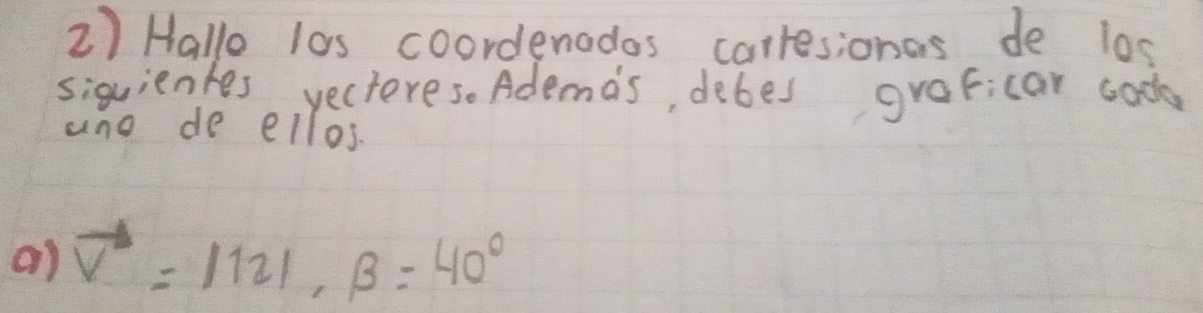 2) Hallo las coordenadas cartesianas de los
siguientes vectores. Además, debes graficar cada
uno de ellos.
a) V⃗ = |12|, β = 40°